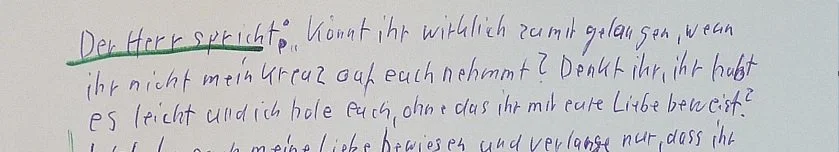 Der Herr spricht: „Könnt ihr wirklich zu mir gelangen, wenn
ihr nicht mein Kreuz auf euch nehmmt? Denkt ihr, ihr habt
es leicht und ich hole euch, ohne das ihr mir eure Liebe beweist?
meine Liebe bewiesen und verlange nur, dass ihr